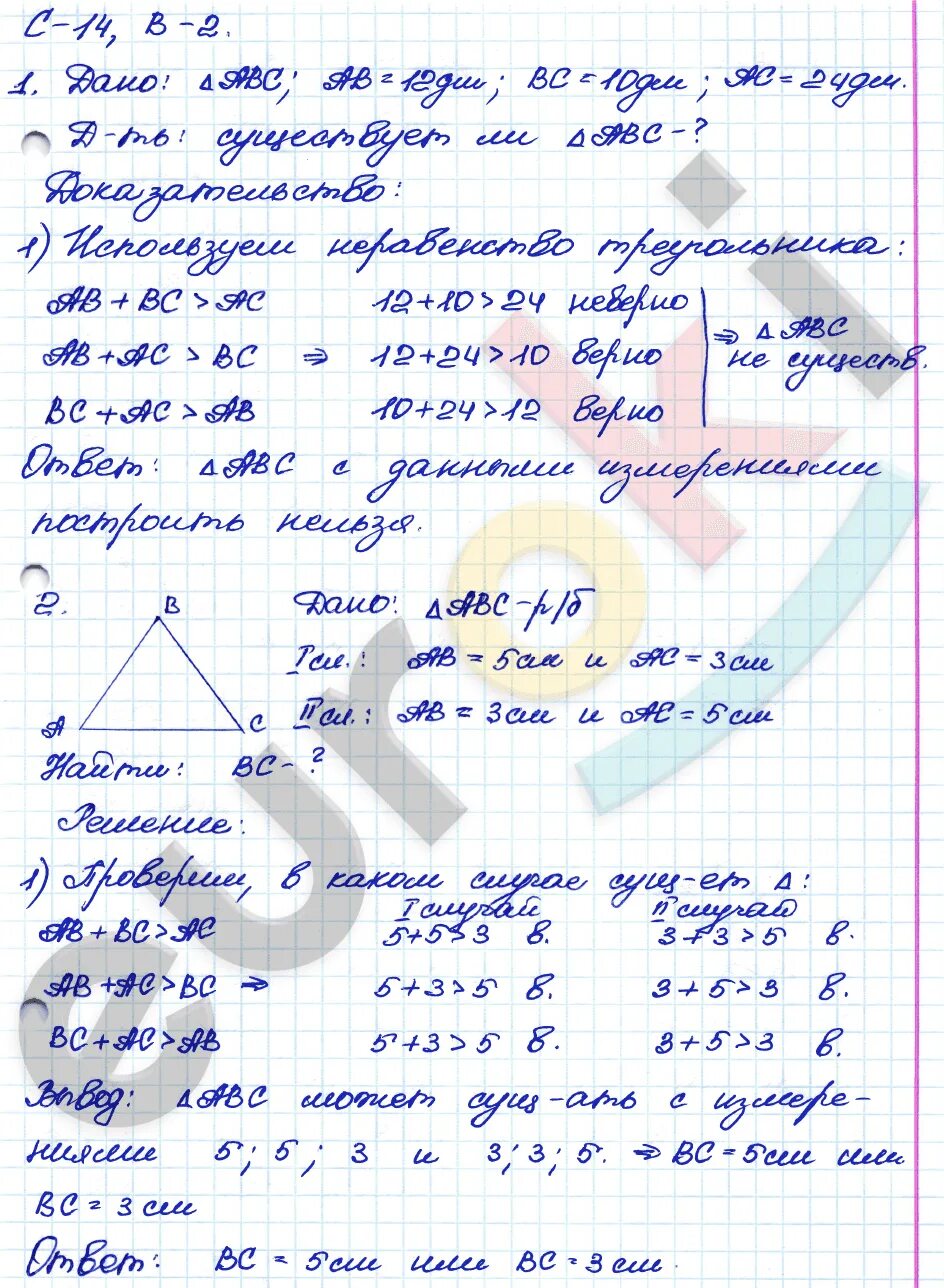 С-14, В-2.
1. Дано: △ABC; AB = 12дм; BC = 10дм; AC = 24дм.
Д-ть: существует ли △ABC-?
Доказательство:
1) Используем неравенство треугольника:
AB + BC > AC 12+10>24 неверно
AB + AC > BC ⇒ 12+24>10 верно ⇒ △ABC не существ.
BC + AC > AB 10+24>12 верно
Ответ: △ABC с данными измерениями
построить нельзя.
2. B Дано: △ABC-р/б
I сл.: AB = 5см и AC = 3см
A C II сл.: AB = 3см и AC = 5см
Найти: BC-?
Решение:
1) Проверим, в каком случае сущ-ет △:
I случай II случай
AB + BC > AC 5+5>3 в. 3+3>5 в.
AB + AC > BC ⇒ 5+3>5 в. 3+5>3 в.
BC + AC > AB 5+3>5 в. 3+5>3 в.
Вывод: △ABC может сущ-ать с измере-
ниями 5; 5; 3 и 3; 3; 5. ⇒ BC = 5см или
BC = 3см
Ответ: BC = 5см или BC = 3см.
euroki